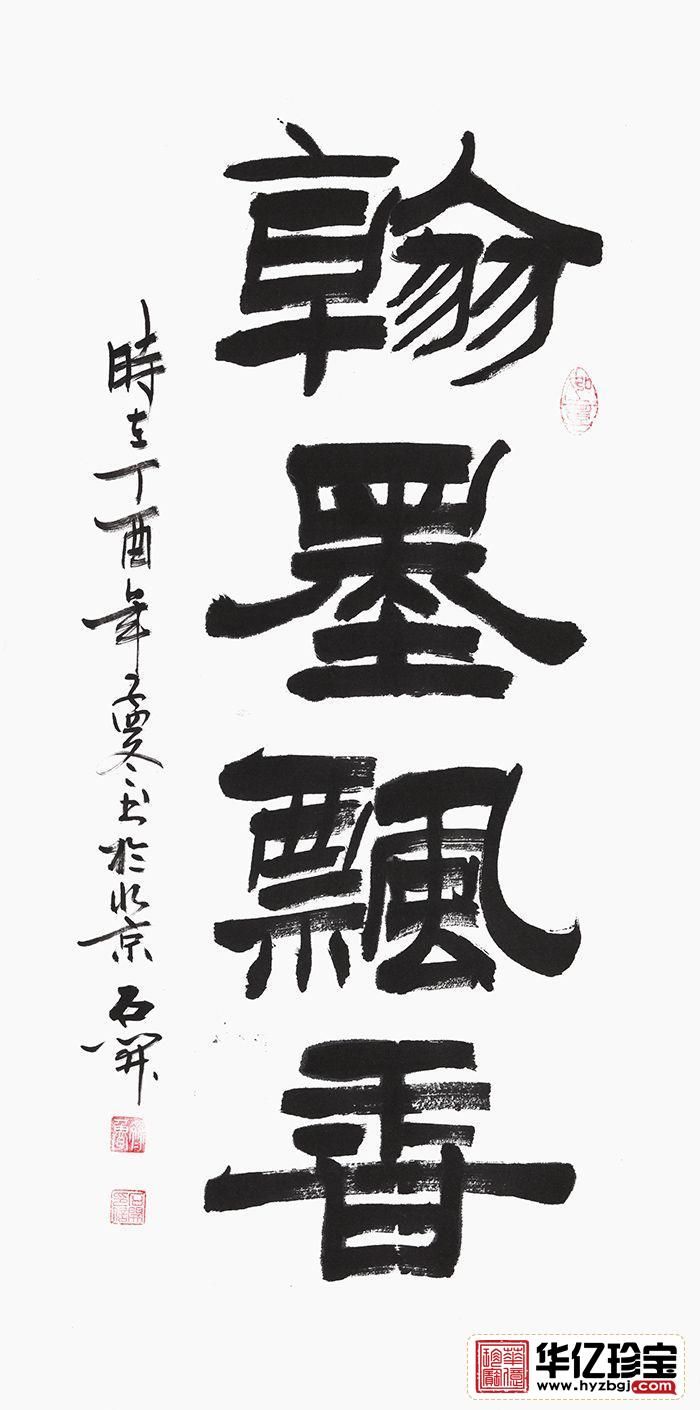 翰墨飄香
時在丁酉年夏冬書於北京 石開
华亿珍宝
www.hyzbgj.com